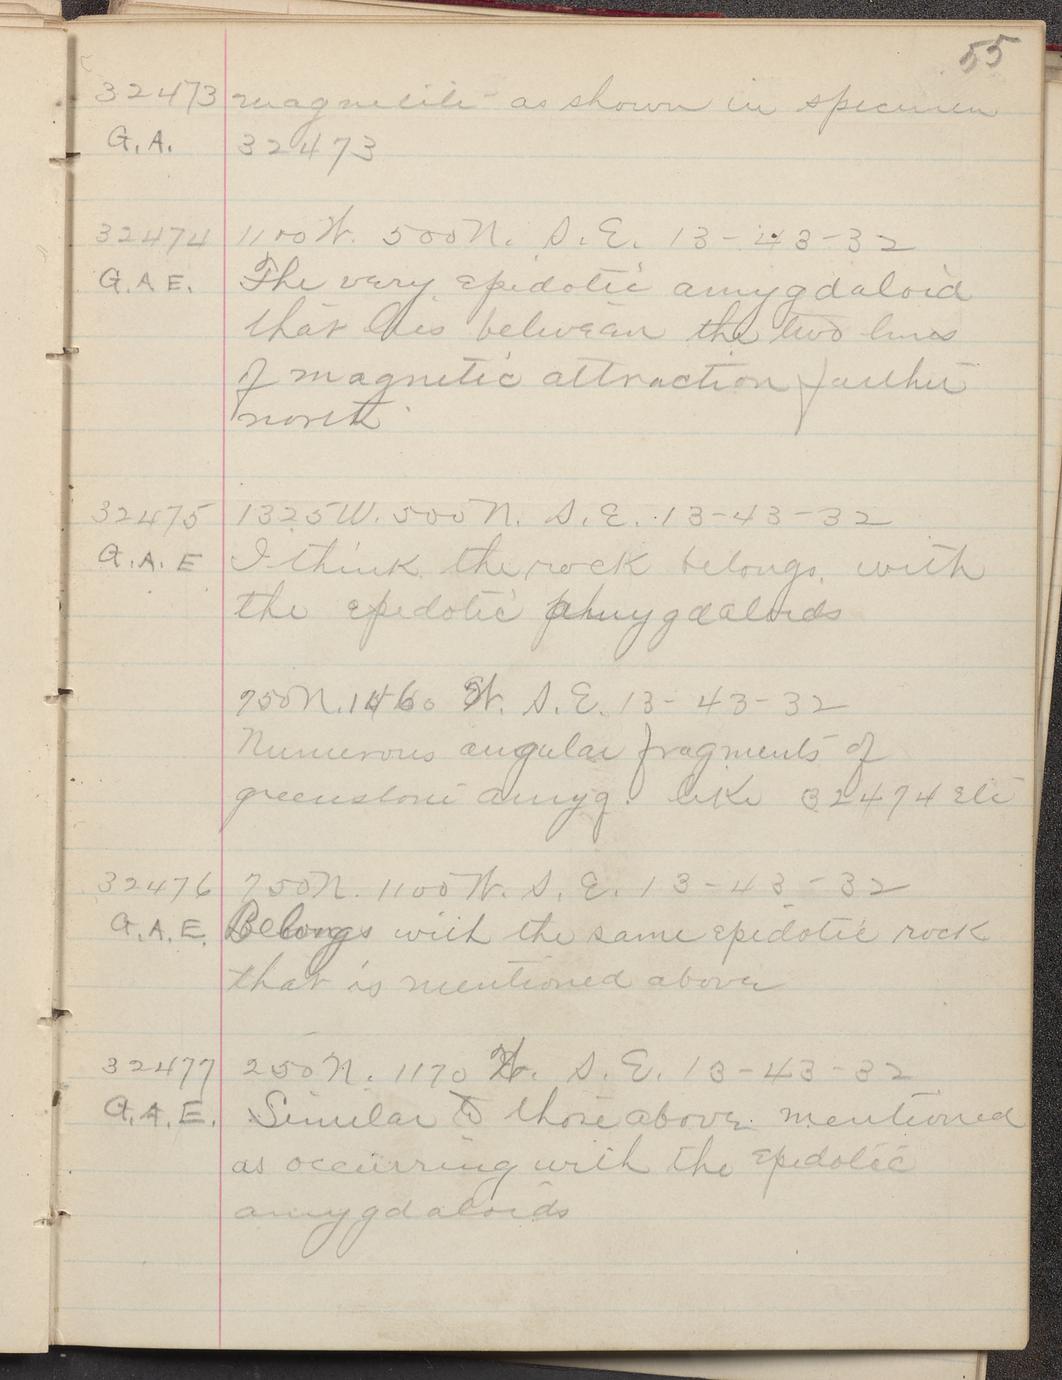 55
32473 magnetite as shown in specimen
G.A. 32473
32474 1100 W. 500 N. S.E. 13-43-32
G.A E. The very epidotic amygdaloid
that lies between the two lines
of magnetic attraction farther
north.
32475 1325 W. 500 N. S.E. 13-43-32
G.A. E I think the rock belongs with
the epidotic amygdaloids
750 N. 1460 W. S.E. 13-43-32
Numerous angular fragments of
greenstone amyg. like 32474 etc
32476 750 N. 1100 W. S.E. 13-43-32
G.A.E. Belongs with the same epidotic rock
that is mentioned above
32477 250 N. 1170 W. S.E. 13-43-32
G.A.E. Similar to those above mentioned
as occurring with the epidotic
amygdaloids